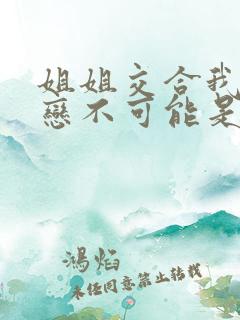 姐姐交合我
戀不可能是
鴻焰
未經同意禁止轉載